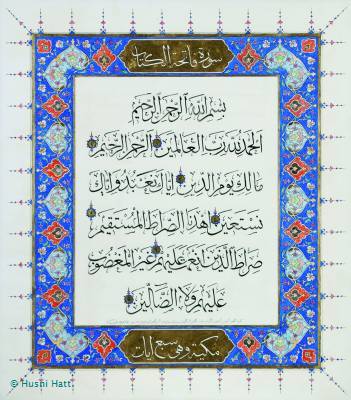 سورة فاتحة الكتاب
بسم الله الرحمن الرحيم
الحمد لله رب العالمين الرحمن الرحيم
مالك يوم الدين إياك نعبد وإياك
نستعين اهدنا الصراط المستقيم
صراط الذين أنعمت عليهم غير المغضوب
عليهم ولا الضالين
مكية وهي سبع آيات
© Husni Hatt